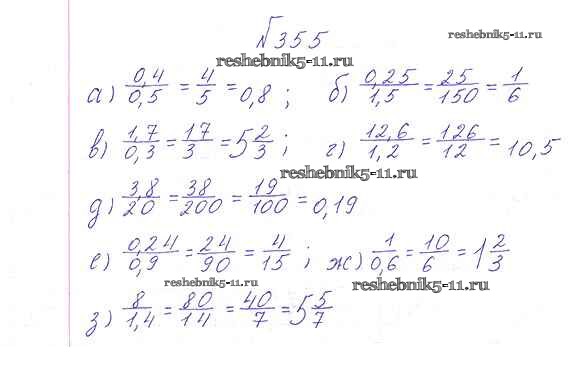 №355
reshebnik5-11.ru
reshebnik5-11.ru
а) 0,4/0,5 = 4/5 = 0,8 ; б) 0,25/1,5 = 25/150 = 1/6
в) 1,7/0,3 = 17/3 = 5 2/3 ; г) 12,6/1,2 = 126/12 = 10,5
reshebnik5-11.ru
д) 3,8/20 = 38/200 = 19/100 = 0,19
е) 0,24/0,9 = 24/90 = 4/15 ; ж) 1/0,6 = 10/6 = 1 2/3
reshebnik5-11.ru
reshebnik5-11.ru
з) 8/1,4 = 80/14 = 40/7 = 5 5/7